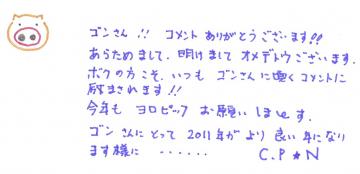 ゴンさん!! コメントありがとうございます!!
あらためまして、明けまして オメデトウございます。
ボクの方こそ、いつも ゴンさんに働くコメントに
励まされます!!
今年も ヨロピック お願いしまーす。
ゴンさんにとって 2011年が より良い年になり
ます様に ‥‥‥ C.P★N